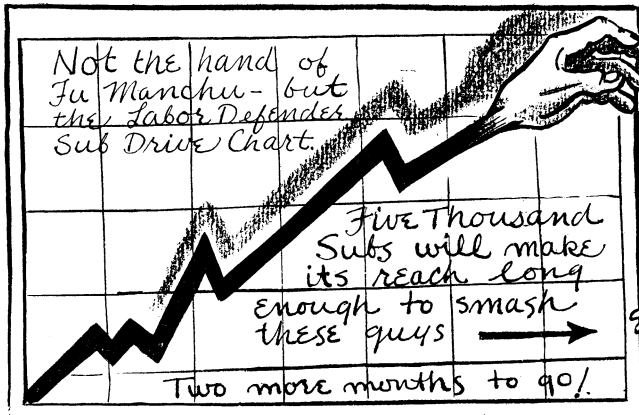 Not the hand of
Fu Manchu - but
the Labor Defender
Sub Drive Chart.
Five Thousand
Subs will make
its reach long
enough to smash
these guys
Two more months to go!